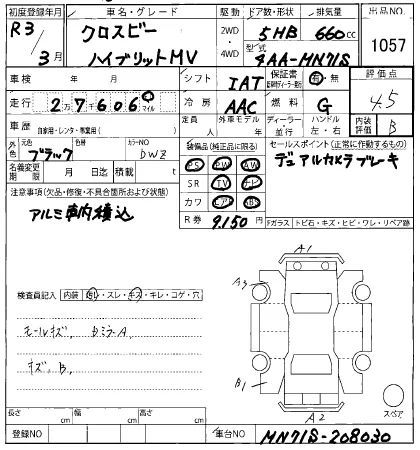 初度登録年月 車名・グレード 駆動 ドア数・形状 排気量 出品NO.
R3/3月 クロスビー ハイブリットMV 2WD 4WD 5HB 660cc 1057
型式 4AA-MN71S
車検 年 月 シフト IAT 保証書 有・無 評価点 4.5
走行 27606 マイル 冷房 AAC 燃料 G
車歴 自家用・レンタ・事業用( ) 定員 外車モデル 年 ディーラー 並行 ハンドル 左・右 内装評価 B
外色 元色 ブラック 色替 カラーNO DWZ 装備品(純正品に限る) セールスポイント(正常に作動するもの)
名義変更期限 月 日迄 積載 t PS PW AW デュアルカメラブレーキ
注意事項(欠品・修復・不具合箇所および状態) SR TV ナビ
アルミ車内積込 カワ
R券 9,150円 Fガラス トビ石・キズ・ヒビ・ワレ・リペア跡
A1
検査員記入 内装 スレ・キズ・キレ・コゲ・穴 A3
モールキズ、
キズ、B、 B1
スペア
長さ cm 幅 cm 高さ cm A2
登録NO 車台NO MN71S-208030